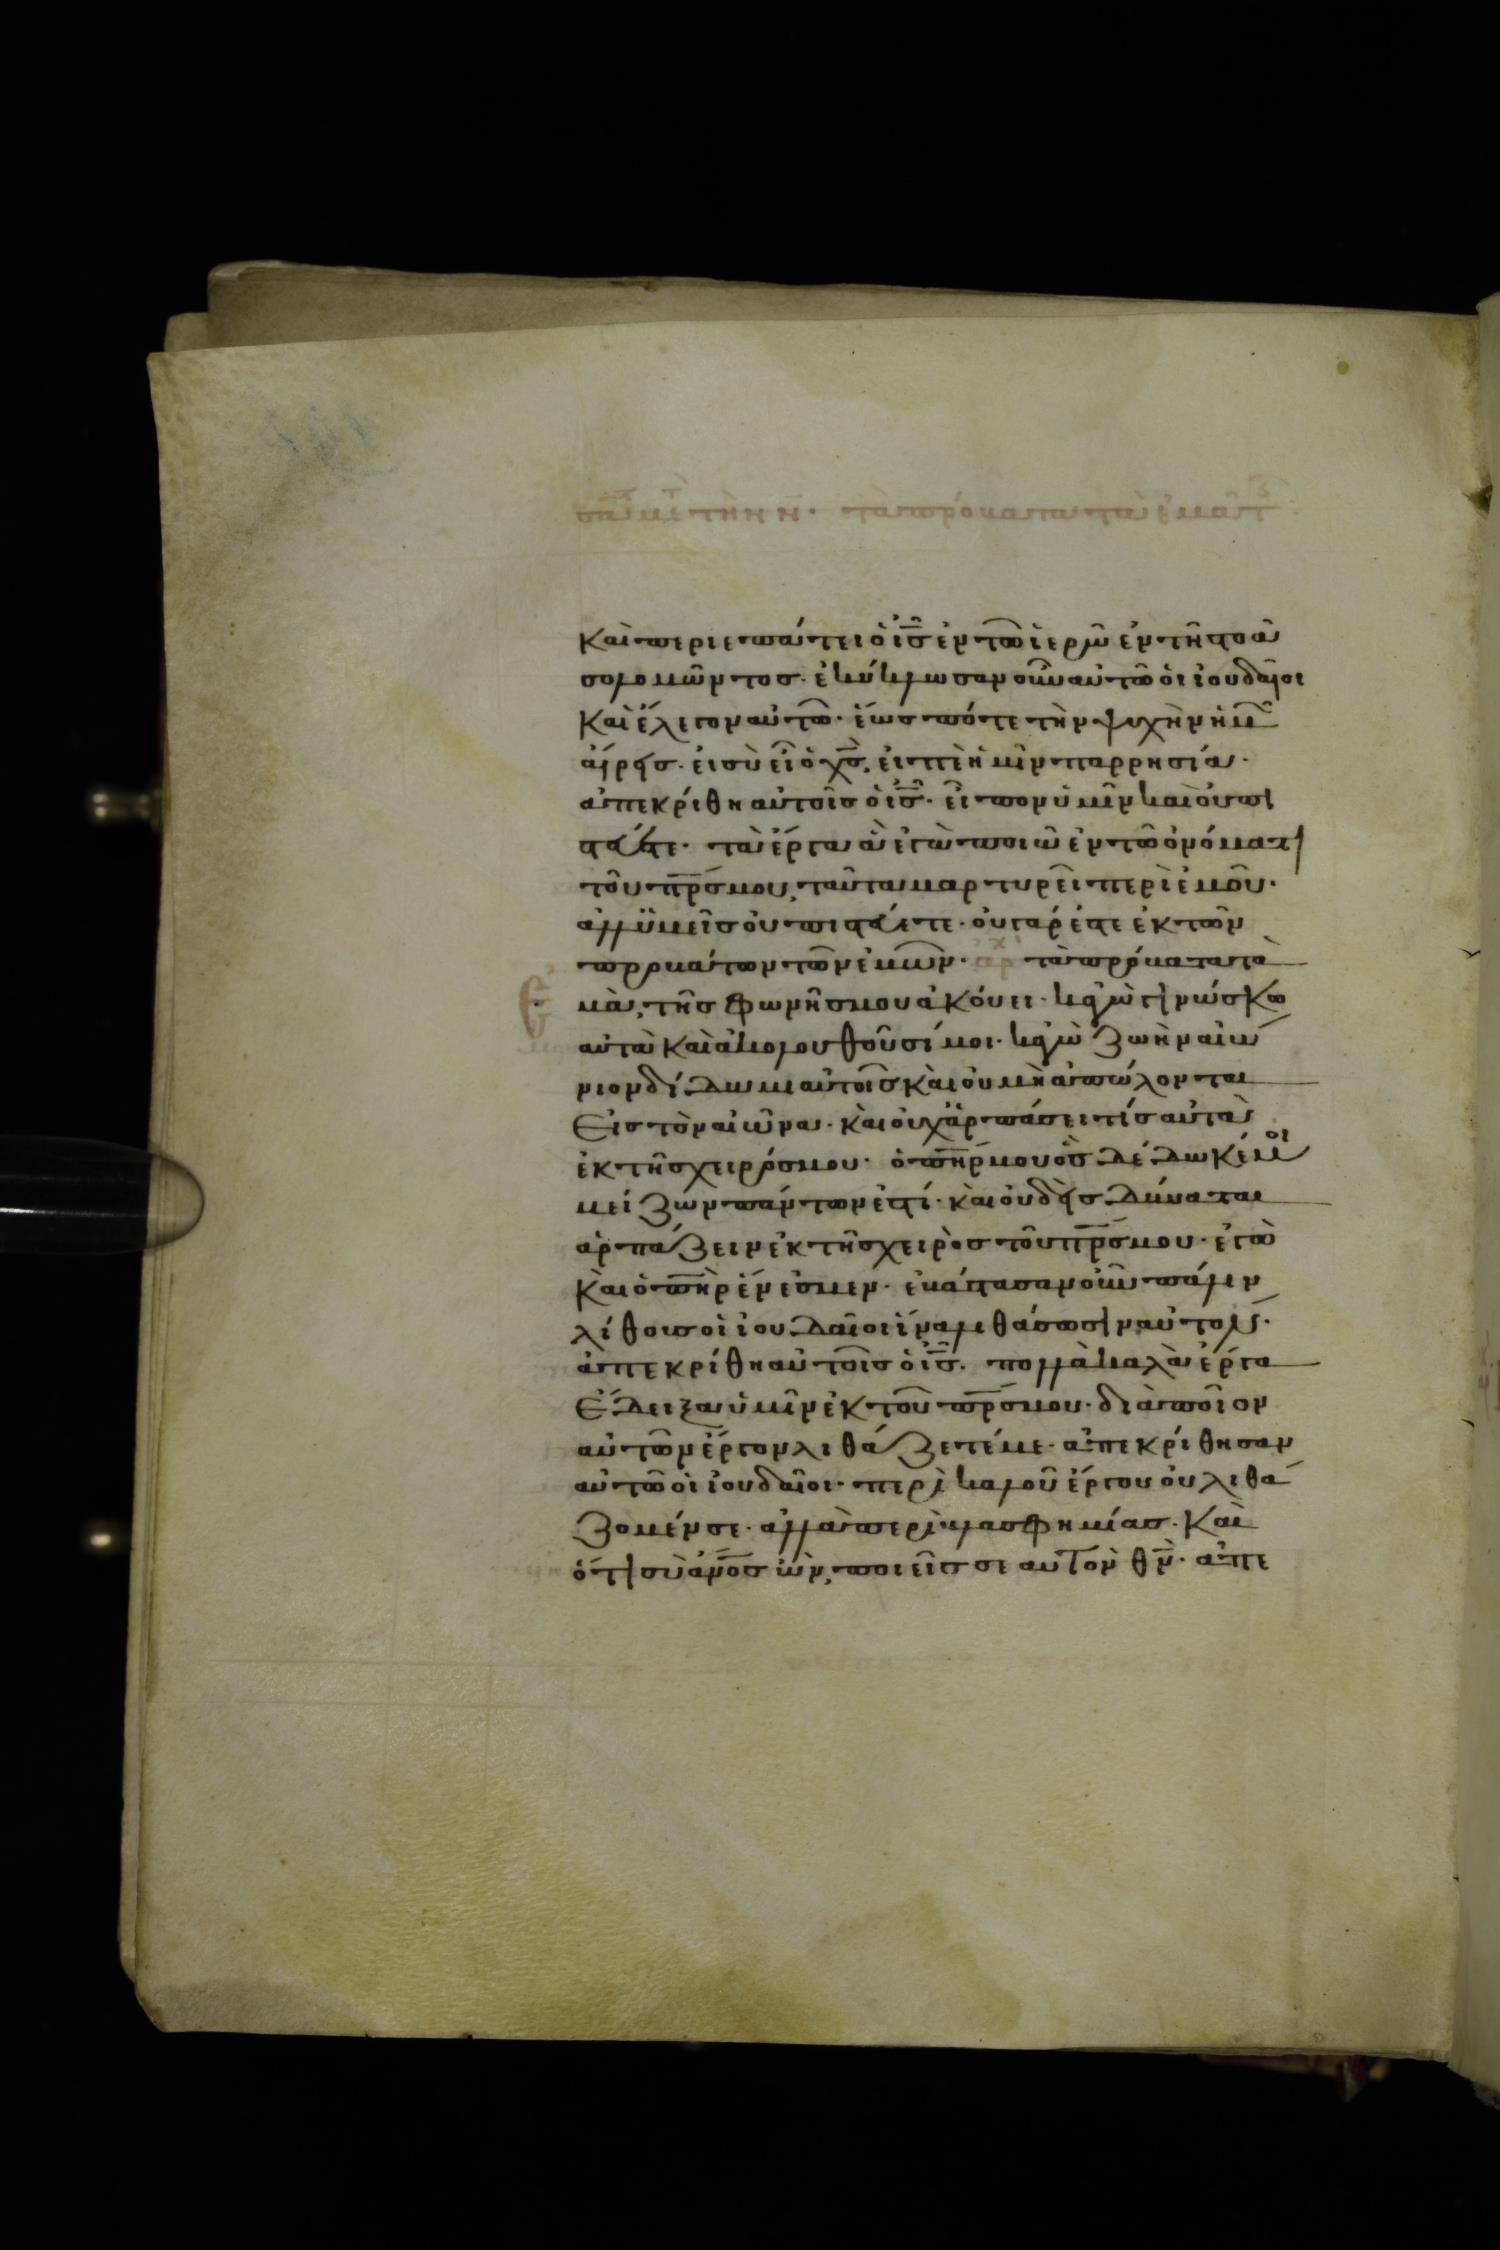 τὰ πρόβατα τὰ ἐμὰ τ
καὶ περιεπάτει ὁ ἰς ἐν τῶ ἱερῶ ἐν τῆ στοᾶ
σολομῶντος· ἐκύκλωσαν οὖν αὐτῶ ὁι ἰουδαῖοι
καὶ ἔλεγον αὐτῶ· ἕως πότε τὴν ψυχὴν ἡμ
αἴρεις· εἰ σὺ εἶ ὁ χς, εἰπὲ ἡμῖν παρρησία·
ἀπεκρίθη αὐτοῖς ὁ ἰς· εἶπον ὑμῖν καὶ οὐ πι
στεύετε· τὰ ἔργα ἃ ἐγὼ ποιῶ ἐν τῶ ὀνόματι
τοῦ πρς μου, ταῦτα μαρτυρεῖ περὶ ἐμοῦ·
ἀλλ ὑμεῖς οὐ πιστεύετε· οὐ γάρ ἐστε ἐκ τῶν
προβάτων τῶν ἐμῶν· ἀρχ τὰ πρόβατα τὰ ἐ
μὰ, τῆς φωνῆς μου ἀκούει· κἀγὼ γινώσκω
αὐτὰ καὶ ἀκολουθοῦσί μοι· κἀγὼ ζωὴν αἰώ
νιον δίδωμι αὐτοῖς καὶ οὐ μὴ ἀπώλονται
Εἰς τὸν αἰῶνα· καὶ οὐχ ἁρπάσει τίς αὐτὰ
ἐκ τῆς χειρός μου· ὁ πηρ μου ὃς δέδωκέ μοι
μείζων πάντων ἐστί· καὶ οὐδεὶς δύναται
ἁρπάζειν ἐκ τῆς χειρὸς τοῦ πρς μου· ἐγὼ
καὶ ὁ πηρ ἕν ἐσμεν· ἐβάστασαν οὖν πάλιν
λίθους οἱ ἰουδαῖοι ἵνα λιθάσωσιν αὐτόν·
ἀπεκρίθη αὐτοῖς ὁ ἰς· πολλὰ καλὰ ἔργα
Ἔδειξα ὑμῖν ἐκ τοῦ πρς μου· διὰ ποῖον
αὐτῶν ἔργον λιθάζετέ με· ἀπεκρίθησαν
αὐτῶ οἱ ἰουδαῖοι· περὶ καλοῦ ἔργου οὐ λιθά
ζομέν σε· ἀλλὰ περὶ βλασφημίας· Καὶ
ὅτι σὺ ἀνος ὢν, ποιεῖς σεαυτὸν θν· ἀπε